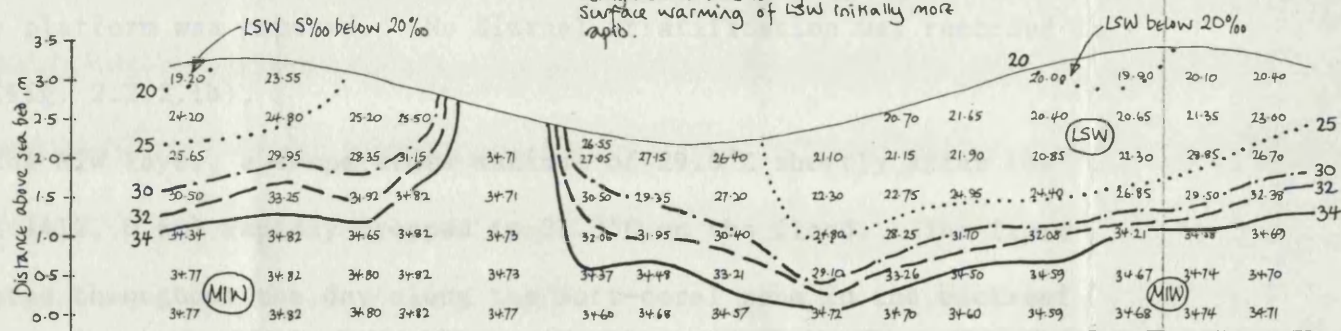 Surface warming of LSW initially more
rapid.
LSW 5‰ below 20‰
LSW below 20‰
Distance above sea bed, m
3.5
3.0
2.5
2.0
1.5
1.0
0.5
0.0
20
25
30
32
34
20
25
30
32
34
19.20 23.55 20.08 19.90 20.10 20.40
24.20 24.80 25.20 25.50 20.70 21.65 20.40 20.65 21.35 23.00
LSW
26.55
25.65 29.95 28.35 31.15 34.71 27.05 27.15 26.40 21.10 21.15 21.90 20.85 21.30 28.85 26.70
30.50 33.25 31.92 34.82 34.71 30.50 29.35 27.20 22.30 22.75 24.95 24.48 26.85 29.50 32.38
34.34 34.82 34.65 34.82 34.73 32.06 31.95 30.40 24.82 28.25 31.70 32.08 34.21 34.48 34.69
34.77 34.82 34.80 34.82 34.73 34.37 34.48 33.21 29.10 33.26 34.50 34.59 34.67 34.74 34.70
MIW
MIW
34.77 34.82 34.80 34.82 34.77 34.60 34.68 34.57 34.72 34.70 34.60 34.59 34.68 34.74 34.71